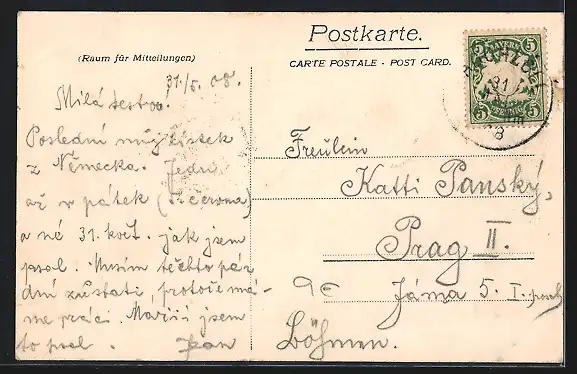 Postkarte.
(Raum für Mitteilungen)
CARTE POSTALE - POST CARD.
BAYERN
5 5
5 5
31
8
31/5. 08.
Milá sestro.
Poslední můj lístek
z Německa. Jedu
až v pátek
a né 31. květ. jak jsem
psal. Musím těchto pár
dní zůstati, protože má-
me práci. Mařii jsem
to psal. Jean
Freulein
Katti Panský,
Prag II.
Jáma 5. I.
Böhmen.